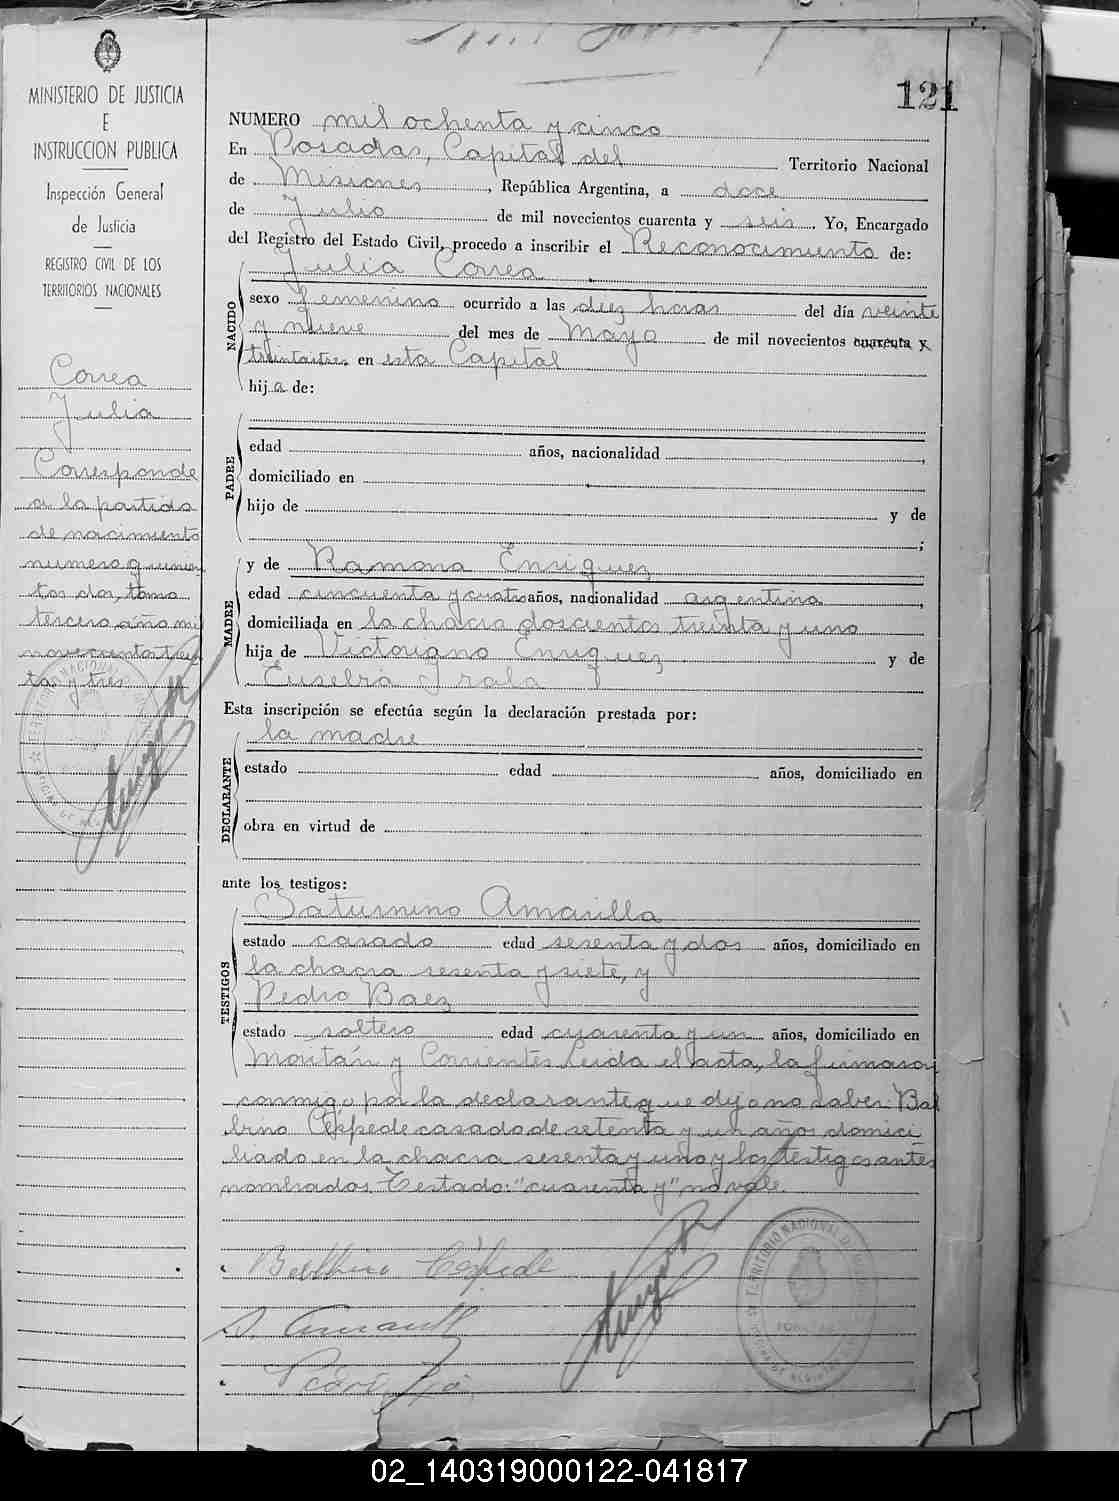 121
MINISTERIO DE JUSTICIA
E
INSTRUCCION PUBLICA
Inspección General
de Justicia
REGISTRO CIVIL DE LOS
TERRITORIOS NACIONALES
Correa
Julia
Corresponde
a la partida
de nacimiento
numero quinien
tos dos, tomo
tercero año mil
novecientos trein
ta y tres
NUMERO mil ochenta y cinco
En Posadas, Capital del Territorio Nacional
de Misiones, República Argentina, a doce
de Julio de mil novecientos cuarenta y seis. Yo, Encargado
del Registro del Estado Civil, procedo a inscribir el Reconocimiento de:
Julia Correa
NACIDO
sexo femenino ocurrido a las diez horas del día veinte
y nueve del mes de Mayo de mil novecientos cuarenta y
treintaitres en esta Capital
hija de:
PADRE
edad años, nacionalidad ,
domiciliado en
hijo de y de
;
MADRE
y de Ramona Enriquez
edad cincuenta y cuatro años, nacionalidad argentina,
domiciliada en la chacra doscientos treinta y uno
hija de Victoriano Enriquez y de
Eusebia Irala
Esta inscripción se efectúa según la declaración prestada por:
la madre
DECLARANTE
estado edad años, domiciliado en
obra en virtud de
ante los testigos:
TESTIGOS
Saturnino Amarilla
estado casado edad sesenta y dos años, domiciliado en
la chacra sesenta y siete, y
Pedro Baez
estado soltero edad cuarenta y un años, domiciliado en
Moritán y Corrientes. Leida el acta, la firmaron
conmigo por la declarante que dijo no saber Bal
bino Céspede casado de setenta y un años domici
liado en la chacra sesenta y uno y los testigos antes
nombrados. Testado: "cuarenta y" no vale.
Balbino Céspede
S. Amarill
TERRITORIO NACIONAL DE
02_140319000122-041817